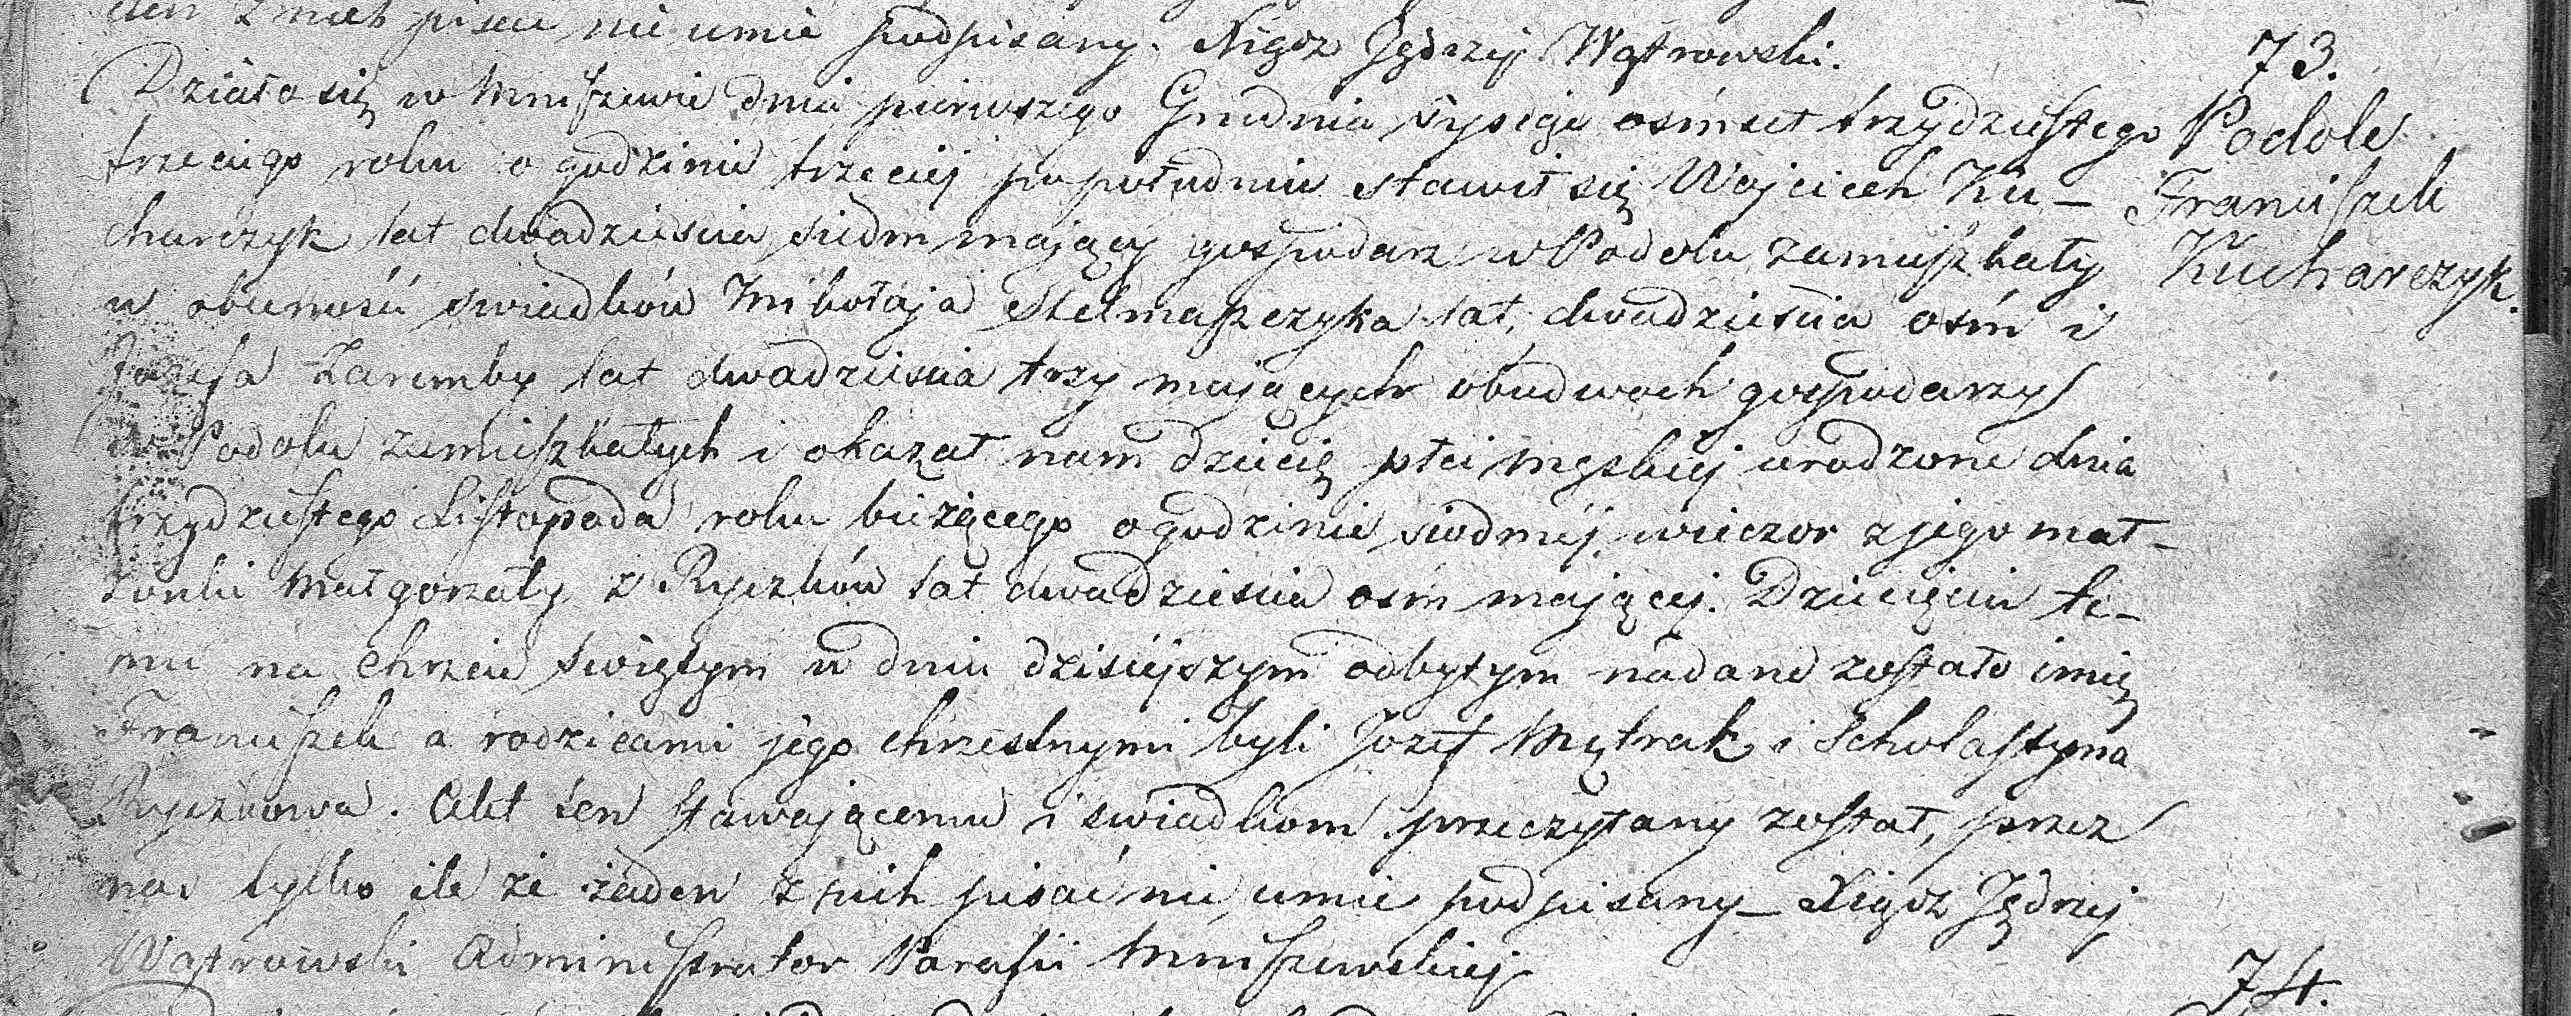 den z nich pisać nie umie podpisany. Xiądz Jędrzej Wątrowski.
73.
Działo się w Mniszewie dnia pierwszego Grudnia tysiąc ośmset trzydziestego
Podole
trzeciego roku o godzinie trzeciej popołudniu stawił się Wojciech Ku-
Franciszek
charczyk lat dwadzieścia siedm mający gospodarz w Podolu zamieszkały
Kucharczyk.
w obecności świadków Mikołaja Stelmaszczyka lat dwadzieścia ośm i
Józefa Zaremby lat dwadzieścia trzy mających obudwóch gospodarzy
w Podolu zamieszkałych i okazał nam dziecię płci męskiej urodzone dnia
trzydziestego Listopada roku bieżącego o godzinie siodmej wieczor z jego mał-
żonki Małgorzaty z Ryczków lat dwadzieścia ośm mającej. Dziecięciu te-
mu na chrzcie świętym w dniu dzisiejszym odbytym nadane zostało imię
Franciszek a rodzicami jego chrzestnymi byli Józef Mętrak i Scholastyna
Ryczkowa. Akt ten stawającemu i świadkom przeczytany został, przez
nas tylko ile że żaden z nich pisać nie umie podpisany - Xiądz Jędrzej
Wątrowski Administrator Parafii Mniszewskiej
74.